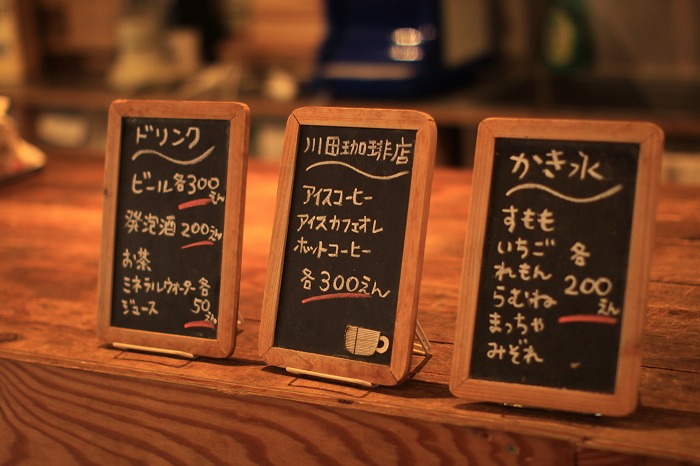 ドリンク
ビール各300えん
発泡酒200えん
お茶
ミネラルウォーター各
ジュース 50えん
川田珈琲店
アイスコーヒー
アイスカフェオレ
ホットコーヒー
各300えん
かき氷
すもも
いちご 各
れもん 200えん
らむね
まっちゃ
みぞれ